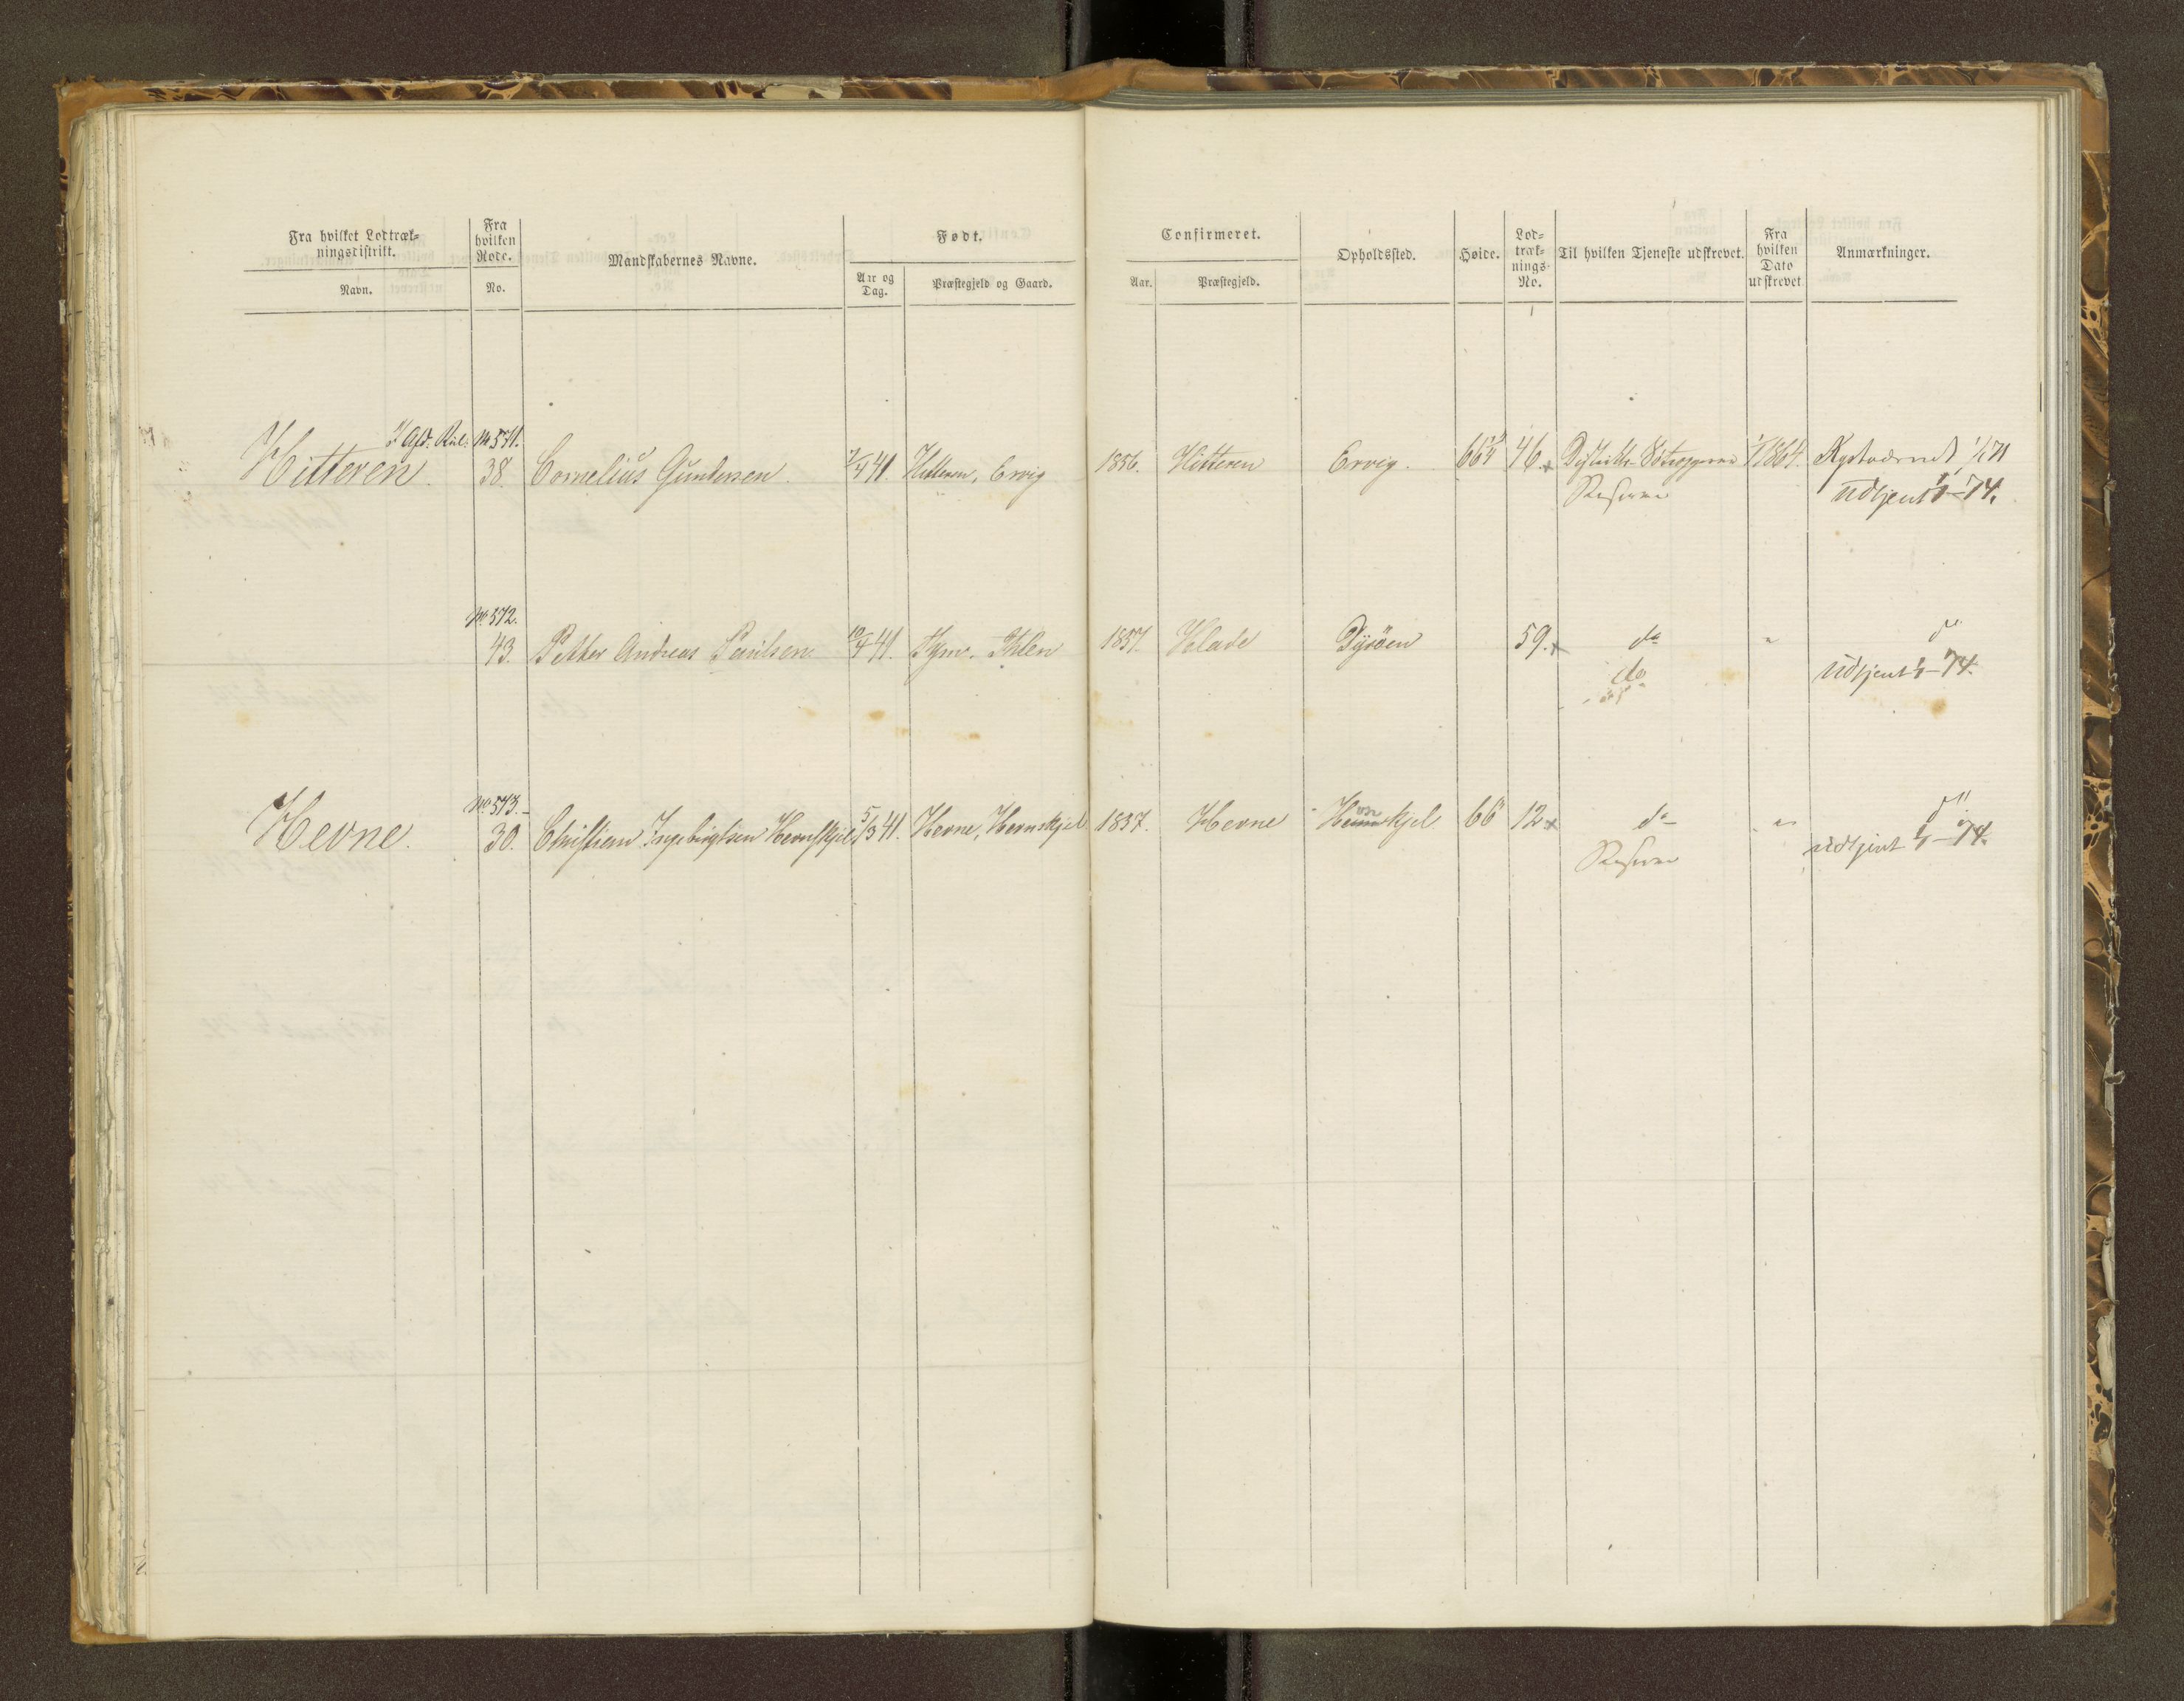 Fra hvilket Lodtræk-
ningsdistrikt.
Navn.
Fra
hvilken
Rode.
No.
Mandskabernes Navne.
Født.
Aar og
Dag.
Præstegjeld og Gaard.
Confirmeret.
Aar.
Præstegjeld.
Opholdssted.
Høide.
Lod-
træk-
nings-
No.
Til hvilken Tjeneste udskrevet.
Fra
hvilken
Dato
udskrevet.
Anmærkninger.
No 571.
Hitteren. 38. Cornelius Gundersen. 7/4 41. Hitteren, Ervig 1856. Hitteren Ervig. 66 46. 1/1 1864. Kystværnet 1/1 71
Reserve udtjent 1/1-74.
No 572.
43. Petter Andreas Paulsen 10/4 41. Ihlen 1857. Hlade Dyröen 59. do " do
do udtjent 1/1-74.
No 573.
Hevne. 30. Christian Ingebrigtsen Hevnskjel 5/3 41. Hevne, Hevnskjel 1857. Hevne Hevnskjel 66" 12 do " do
Reserve udtjent 1/1-74.